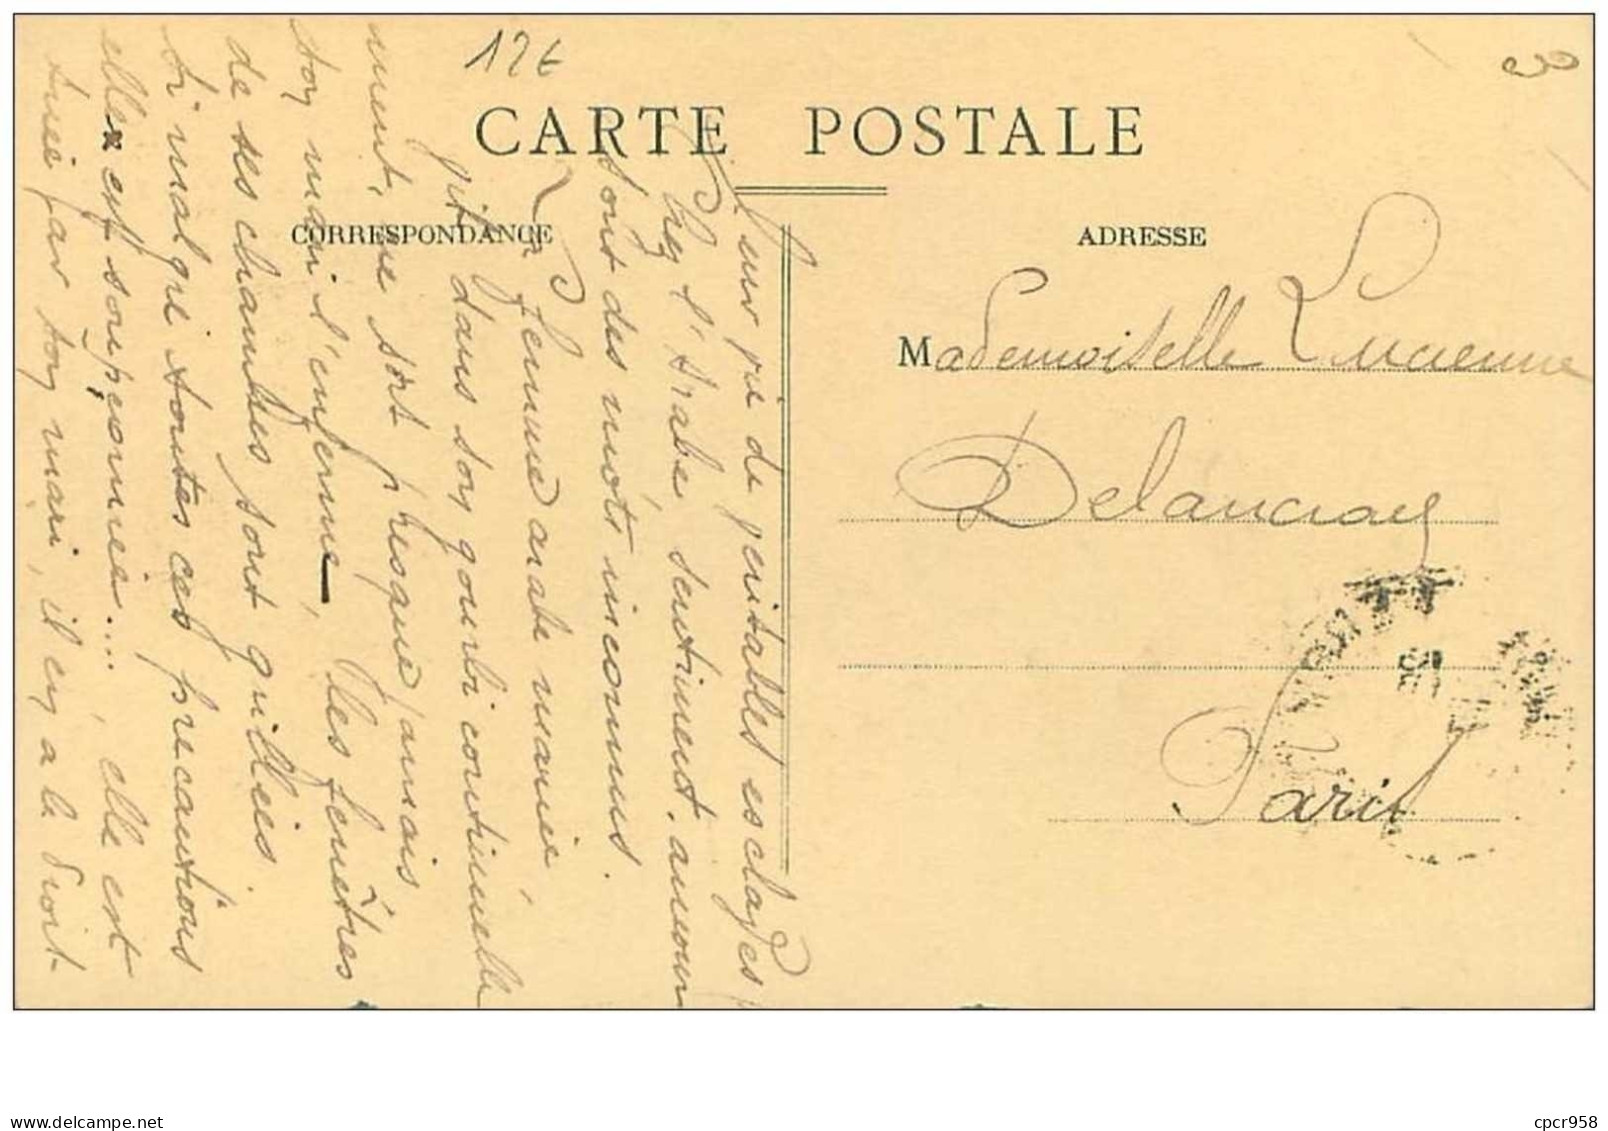 12€
3
CARTE POSTALE
CORRESPONDANCE
ADRESSE
Mademoiselle Lucienne
Delaunay
Paris
leur vie de veritables esclages
Chez l'Arabe, sentiment, amour
sont des mots inconnus.
La femme arabe mariée,
vit dans son gourbi continuelle
ment, ne sort presque jamais
son mari l'enferme, les fenêtres
de ses chambres sont grillées.
Si malgré toutes ces precautions
elle est soupçonnée...., elle est
tuée par son mari, il en a le droit.
cpcr958